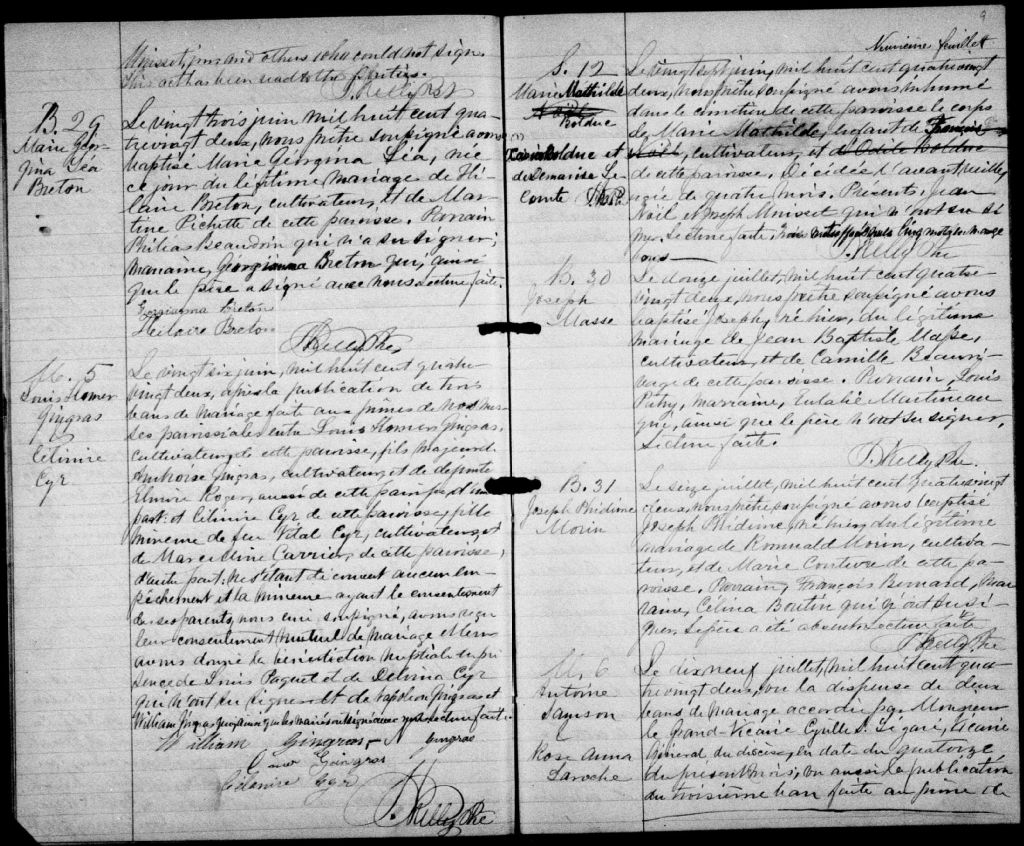 Missot, jnr and others who could not sign.
This act has been read to the parties.
J. Kelly Ptr
B. 29
Marie Géor-
gina Léa
Breton
Le vingt trois juin mil huit cent qua-
trevingt deux, nous prêtre soussigné avons
baptisé Marie Géorgina Léa, née
ce jour du légitime mariage de Hi-
laire Breton, cultivateur, et de Mar-
tine Pichette de cette paroisse. Parrain
Philias Beaudoin qui n'a su signer;
marraine, Géorgianna Breton qui, ainsi
que le père a signé avec nous. Lecture faite.
Georgianna Breton
Hilaire Breton
J. Kelly Ptre
M. 5
Louis Homer
Gingras
Célinire
Cyr
Le vingt six juin, mil huit cent quatre
vingt deux, après la publication de trois
bans de mariage faite aux prônes de nos mes-
ses paroissiales entre Louis Homer Gingras,
cultivateur de cette paroisse, fils majeur d'
Ambroise Gingras, cultivateur, et de défunte
Elmire Roger, aussi de cette paroisse, d'une
part: et Célinire Cyr de cette paroisse, fille
mineure de feu Vital Cyr, cultivateur, et
de Marcelline Carrier, de cette paroisse,
d'autre part. Ne s'étant découvert aucun em-
pêchement et la mineure ayant le consentement
de ses parents, nous curé soussigné, avons reçu
leur consentement mutuel de mariage et leur
avons donné la bénédiction nuptiale en pré
sence de Louis Paquet et de Delvina Cyr
qui n'ont su signer et de Napoléon Gingras et
William Gingras qui, ainsi que les mariés ont signé avec nous. Lecture faite.
William Gingras, N Gingras
Gingras
Célenire Cyr
J. Kelly Ptre
9
Neuvième feuillet
S. 12
Marie Mathilde
Noël
Bolduc
Bolduc et
de Demarise Le
Comte J.K. P.
Le vingt sept juin, mil huit cent quatrevingt
deux, nous prêtre soussigné avons inhumé
dans le cimetière de cette paroisse le corps
de Marie Mathilde, enfant de François
Noël, cultivateur, et d'Odile Bolduc
de cette paroisse. Décédée l'avant veille,
agée de quatre mois. Présents: Jean
Noël et Joseph Missot qui n'ont su si
gner. Lecture faite, cinq mots en marge
bons
J. Kelly Ptre
B. 30
Joseph
Masse
Le douze juillet, mil huit cent quatre
vingt deux, nous prêtre soussigné avons
baptisé Joseph, né hier, du légitime
mariage de Jean Baptiste Masse,
cultivateur, et de Camille Beauri-
vage de cette paroisse. Parrain, Louis
Patry, marraine, Eulalie Martineau
qui, ainsi que le père n'ont su signer,
Lecture faite.
J. Kelly Ptre.
B. 31
Joseph Phidime
Morin
Le seize juillet, mil huit cent quatrevingt
deux, nous prêtre soussigné avons baptisé
Joseph Phidime, né hier, du légitime
mariage de Romuald Morin, cultiva-
teur, et de Marie Couture de cette pa-
roisse. Parrain, François Bernard, mar
raine, Célina Boutin qui n'ont su si-
gner. Le père a été absent. Lecture faite
J. Kelly Ptre
M. 6
Antoine
Samson
&
Rose Anna
Laroche
Le dix neuf juillet, mil huit cent qua-
trevingt deux, vu la dispense de deux
bans de mariage accordée par Monsieur
le Grand-Vicaire Cyrille E. Légaré, Vicaire
Général du diocèse, en date du quatorze
du présent mois; vu aussi la publication
du troisième ban faite au prône de